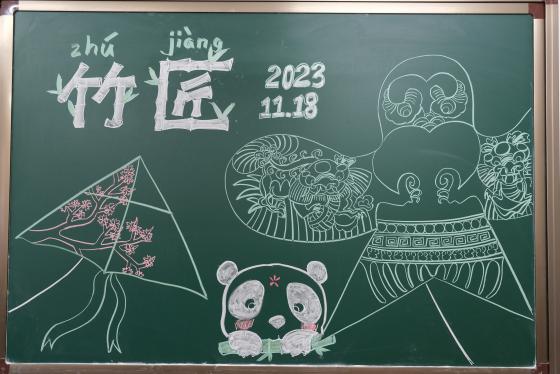 zhú jiàng
竹匠
2023
11.18